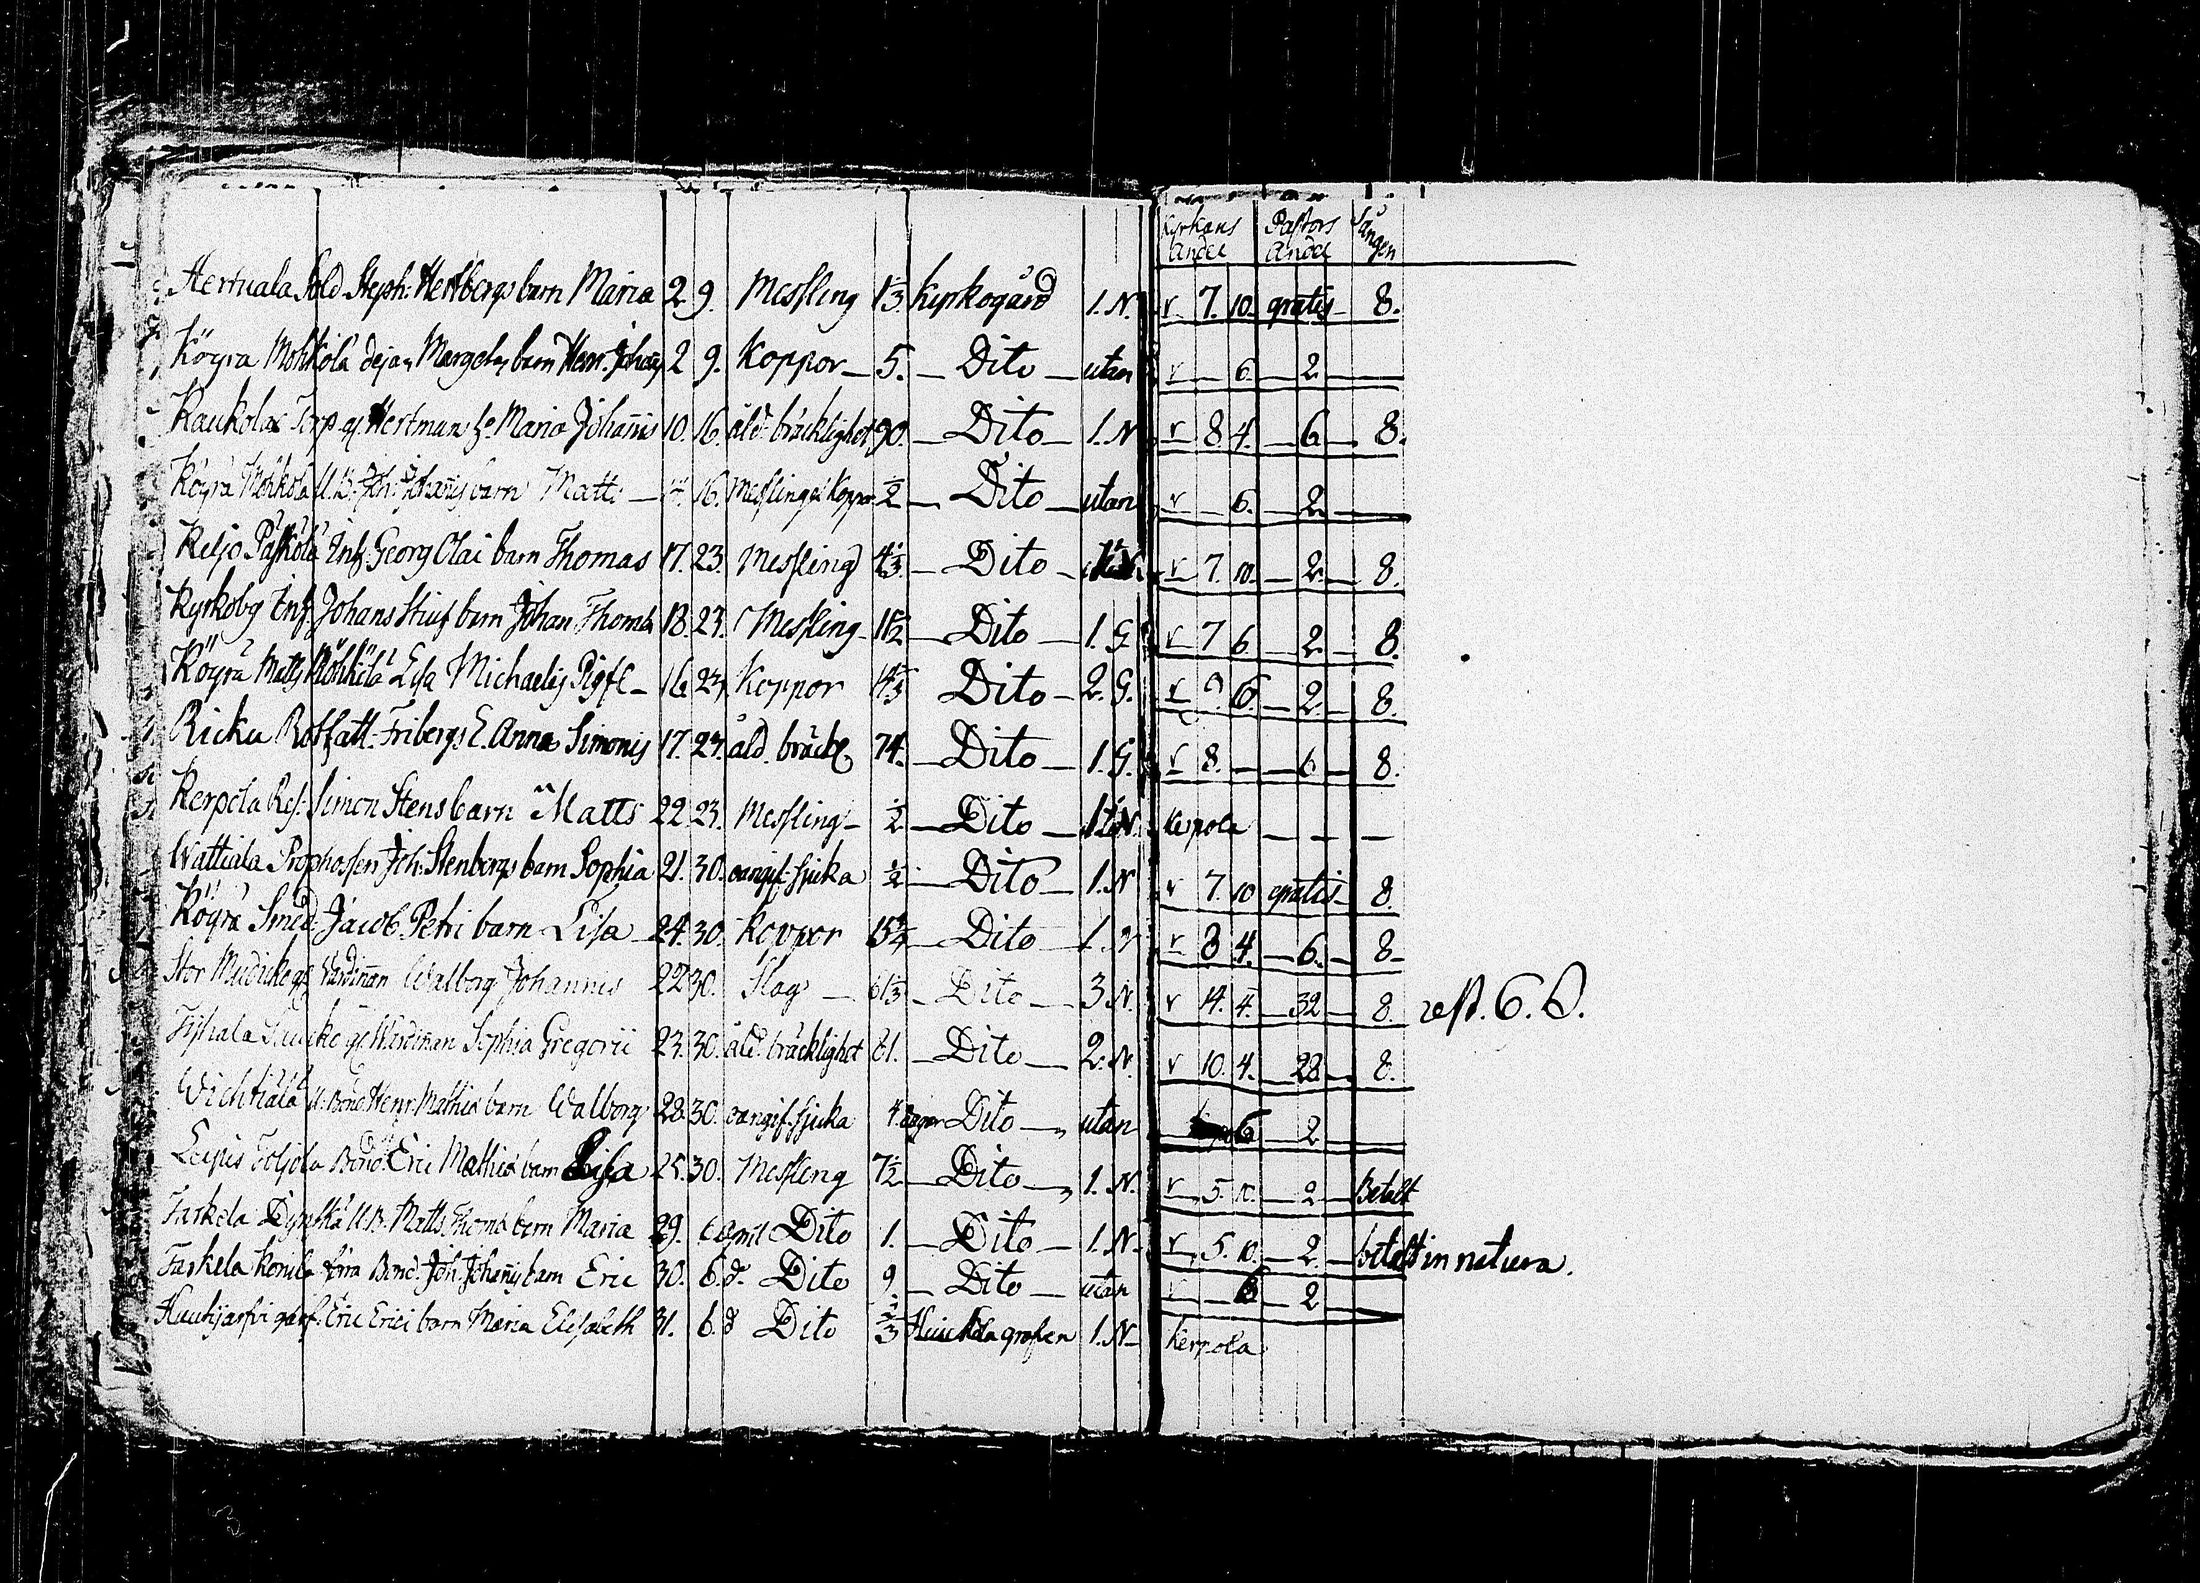 Kyrkans Andel Pastors Andel Sången
Hertuala Sold Steph: Hertbergs barn Maria 2 9. Messling 1/3 kyrkogård 1. N. r 7. 10. gratis 8.
Köyrä Mohkölä dejas Margetas barn Henr. Johañis 2 9. Koppor 5. Dito utan r 6. 2
Kaukola Torp. Hertman Maria Johañis 10. 16. åld. bräcklighet 90. Dito 1. N r 8 4. 6 8.
Köyrä Mohkola U. B. Joh: Johañis barn Matts 16. Messling Koppor 1/2 Dito utan r 6. 2
Keljo Päskölä Inh. Georg Olai barn Thomas 17. 23. Messling 4 1/3 Dito r 7. 10. 2. 8.
Kyrkoby Inh. Johans Stiuf barn Johan Thomæ 18. 23. Messling 1 1/2 Dito 1. G r 7 6. 2. 8.
Köyrä Matts Möhkölä Lisa Michaelis Pige 16. 23. Koppor Dito 2. G. r 6. 2. 8.
Ricku Friberg E. Anna Simonis 17. 23. åld. bräckl. 74. Dito 1. G. r 8. 6 8.
Kerpola Ref. Simon Stens barn Matts 22. 23. Messling 1/2 Dito 1 N. Kerpola
Wattiala Prophossen Joh: Stenbergs barn Sophia 21. 30. oangif. sjuka 1/2 Dito 1. N r 7. 10 gratis 8.
Köyrä Smed. Jacob Petri barn Lisa 24. 30. Koppor Dito 1. N r 8 4. 6. 8
Stor Wardiñan Walborg Johannis 22 30. Slag 61 1/3 Dito 3 N. r 14. 4. 32 8. rest. 6. 6.
Wardiñan Sophia Gregorii 23. 30. åld. bräcklighet 81. Dito 2. N. r 10. 4. 28 8.
Wichtiälä U. Bond. Henr. Mathiæ barn Walborg 28. 30. oangif. sjuka 4. dagar Dito utan 6 2
Leipis Toljola Bond. Eric Mathiæ barn Lisa 25. 30. Messling 7 1/2 Dito 1. N. r 5. 10. 2 Betalt
Taskela U. B. Matts Thomæ barn Maria 29. 6 April Dito 1. Dito 1. N. r 5. 10. 2. betalt in natura.
Taskela Bond. Joh. Johañis barn Eric 30. 6. d. Dito 9. Dito utan r 6 2
Hauhijarfvi Eric Erici barn Maria Elisabeth 31. 6. d Dito 2/3 grafven 1. N. Kerpola